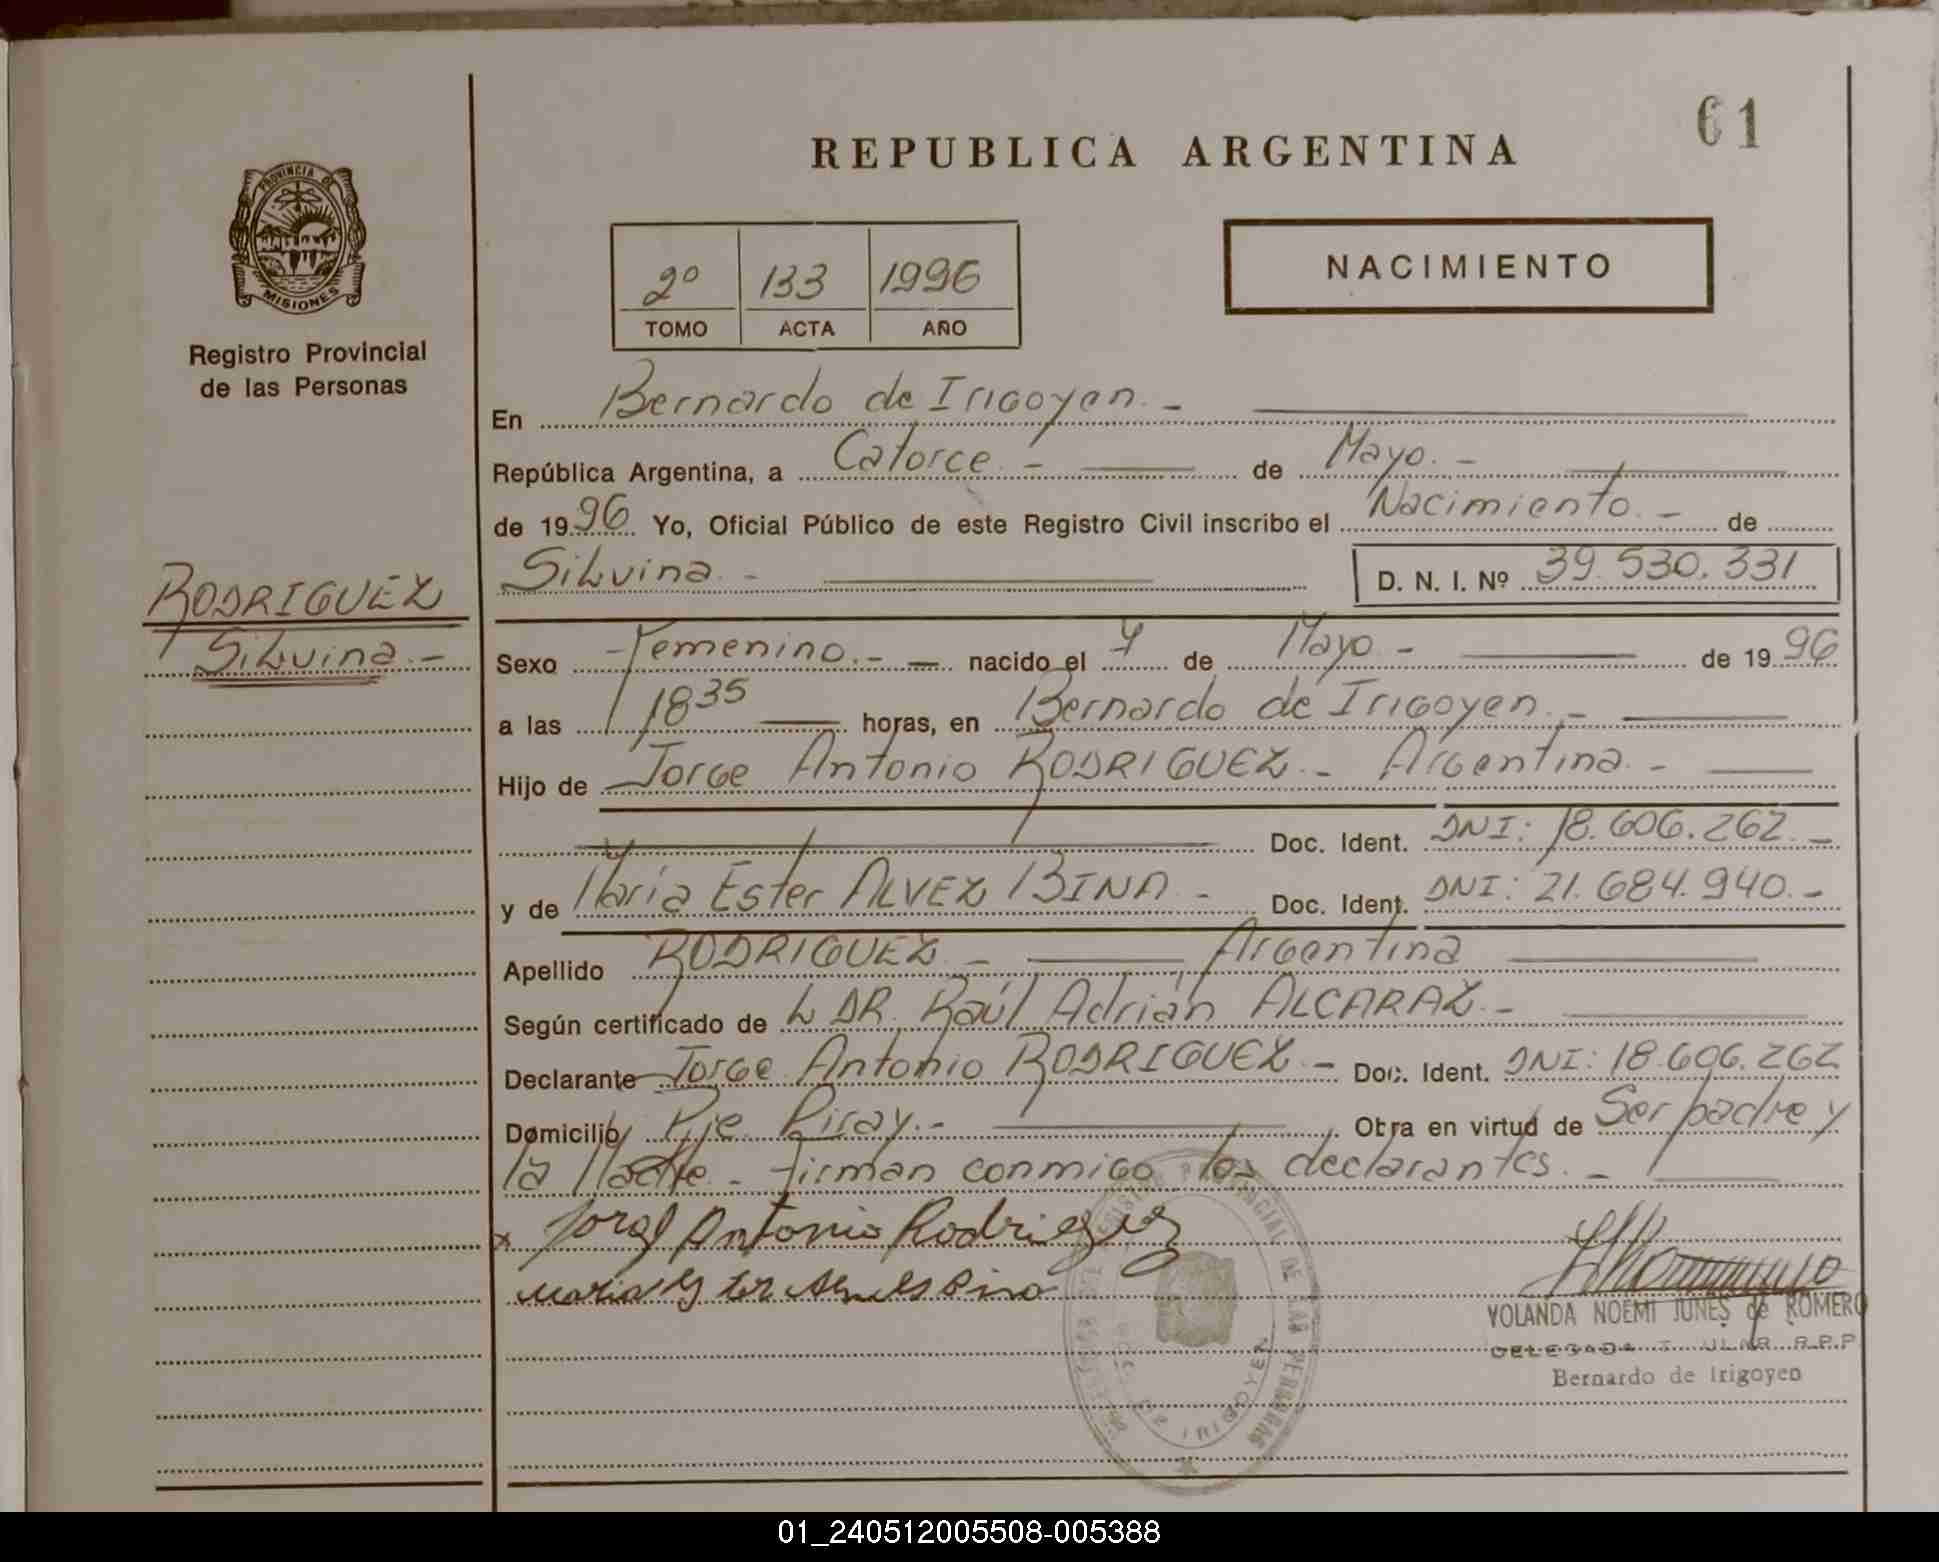 61
REPUBLICA ARGENTINA
PROVINCIA DE
MISIONES
Registro Provincial
de las Personas
2º 133 1996
TOMO ACTA AÑO
NACIMIENTO
En Bernardo de Irigoyen.-
República Argentina, a Catorce.- de Mayo.-
de 1996 Yo, Oficial Público de este Registro Civil inscribo el Nacimiento.- de
Silvina.- D. N. I. Nº 39.530.331
RODRIGUEZ
Silvina.-
Sexo Femenino.- nacido el 7 de Mayo - de 1996
a las 18 35 horas, en Bernardo de Irigoyen.-
Hijo de Jorge Antonio RODRIGUEZ.- Argentina.-
Doc. Ident. DNI: 18.606.262.-
y de María Ester ALVEZ BINA.- Doc. Ident. DNI: 21.684.940.-
Apellido RODRIGUEZ.- Argentina
Según certificado de DR. Raúl Adrián ALCARAZ.-
Declarante Jorge Antonio RODRIGUEZ.- Doc. Ident. DNI: 18.606.262
Domicilio Pje. Piray.- Obra en virtud de Ser padre y
la Madre.- Firman conmigo los declarantes.-
x Jorge Antonio Rodriguez
Maria
YOLANDA NOEMI JUNES de ROMERO
DELEGADA R.P.P.
Bernardo de Irigoyen
PROVINCIAL DE LAS PERSONAS
DE IRIGOYEN
01_240512005508-005388